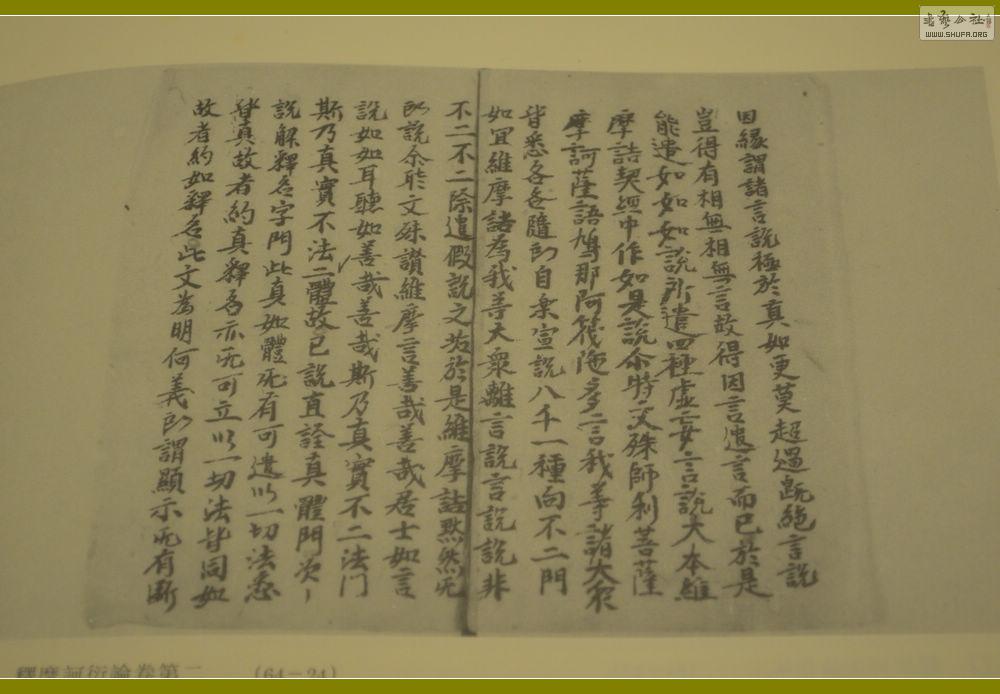 因緣謂諸言說極於真如更莫超過既絕言說
豈得有相無相無言故得因言遣言而已於是
能遣如如如說所遣四種虛妄言說大本維
摩詰契經中作如是說尒時文殊師利菩薩
摩訶薩語鳩那阿筏陁多言我等諸大衆
皆悉各各隨即自樂宣說八千一種向不二門
如宜維摩詰為我等大衆離言說言說說非
不二不二除遣假說之於是維摩詰黙然无
即說尒時文殊讃維摩言善哉善哉居士如言
說如如耳聽如善哉善哉斯乃真實不二法門
斯乃真實不法二體故已說直詮真體門次
說解釋名字門此真如體无有可遣以一切法悉
皆真故者約真釋名亦无可立以一切法皆同如
故者約如釋名此文為明何義即謂顯示无有
釋摩訶衍論卷第二 (64-24)
書藝公社
WWW.SHUFA.ORG